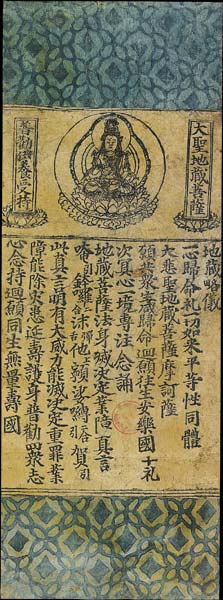 大聖地藏菩薩
普勸供養受持
地藏略儀
一心歸命礼一切如来平等性同體
大悲聖地藏菩薩摩訶薩
願共衆生咸歸命迴願往生安樂國 十礼
次真心一境專注念誦
地藏菩薩法身滅決定業障真言
唵 鉢囉二合 他 娑嚩二合賀引
此真言明有大威力能滅決定重罪業
障能除灾患延壽護身普勸四衆志
心念持迴願同生無量壽國